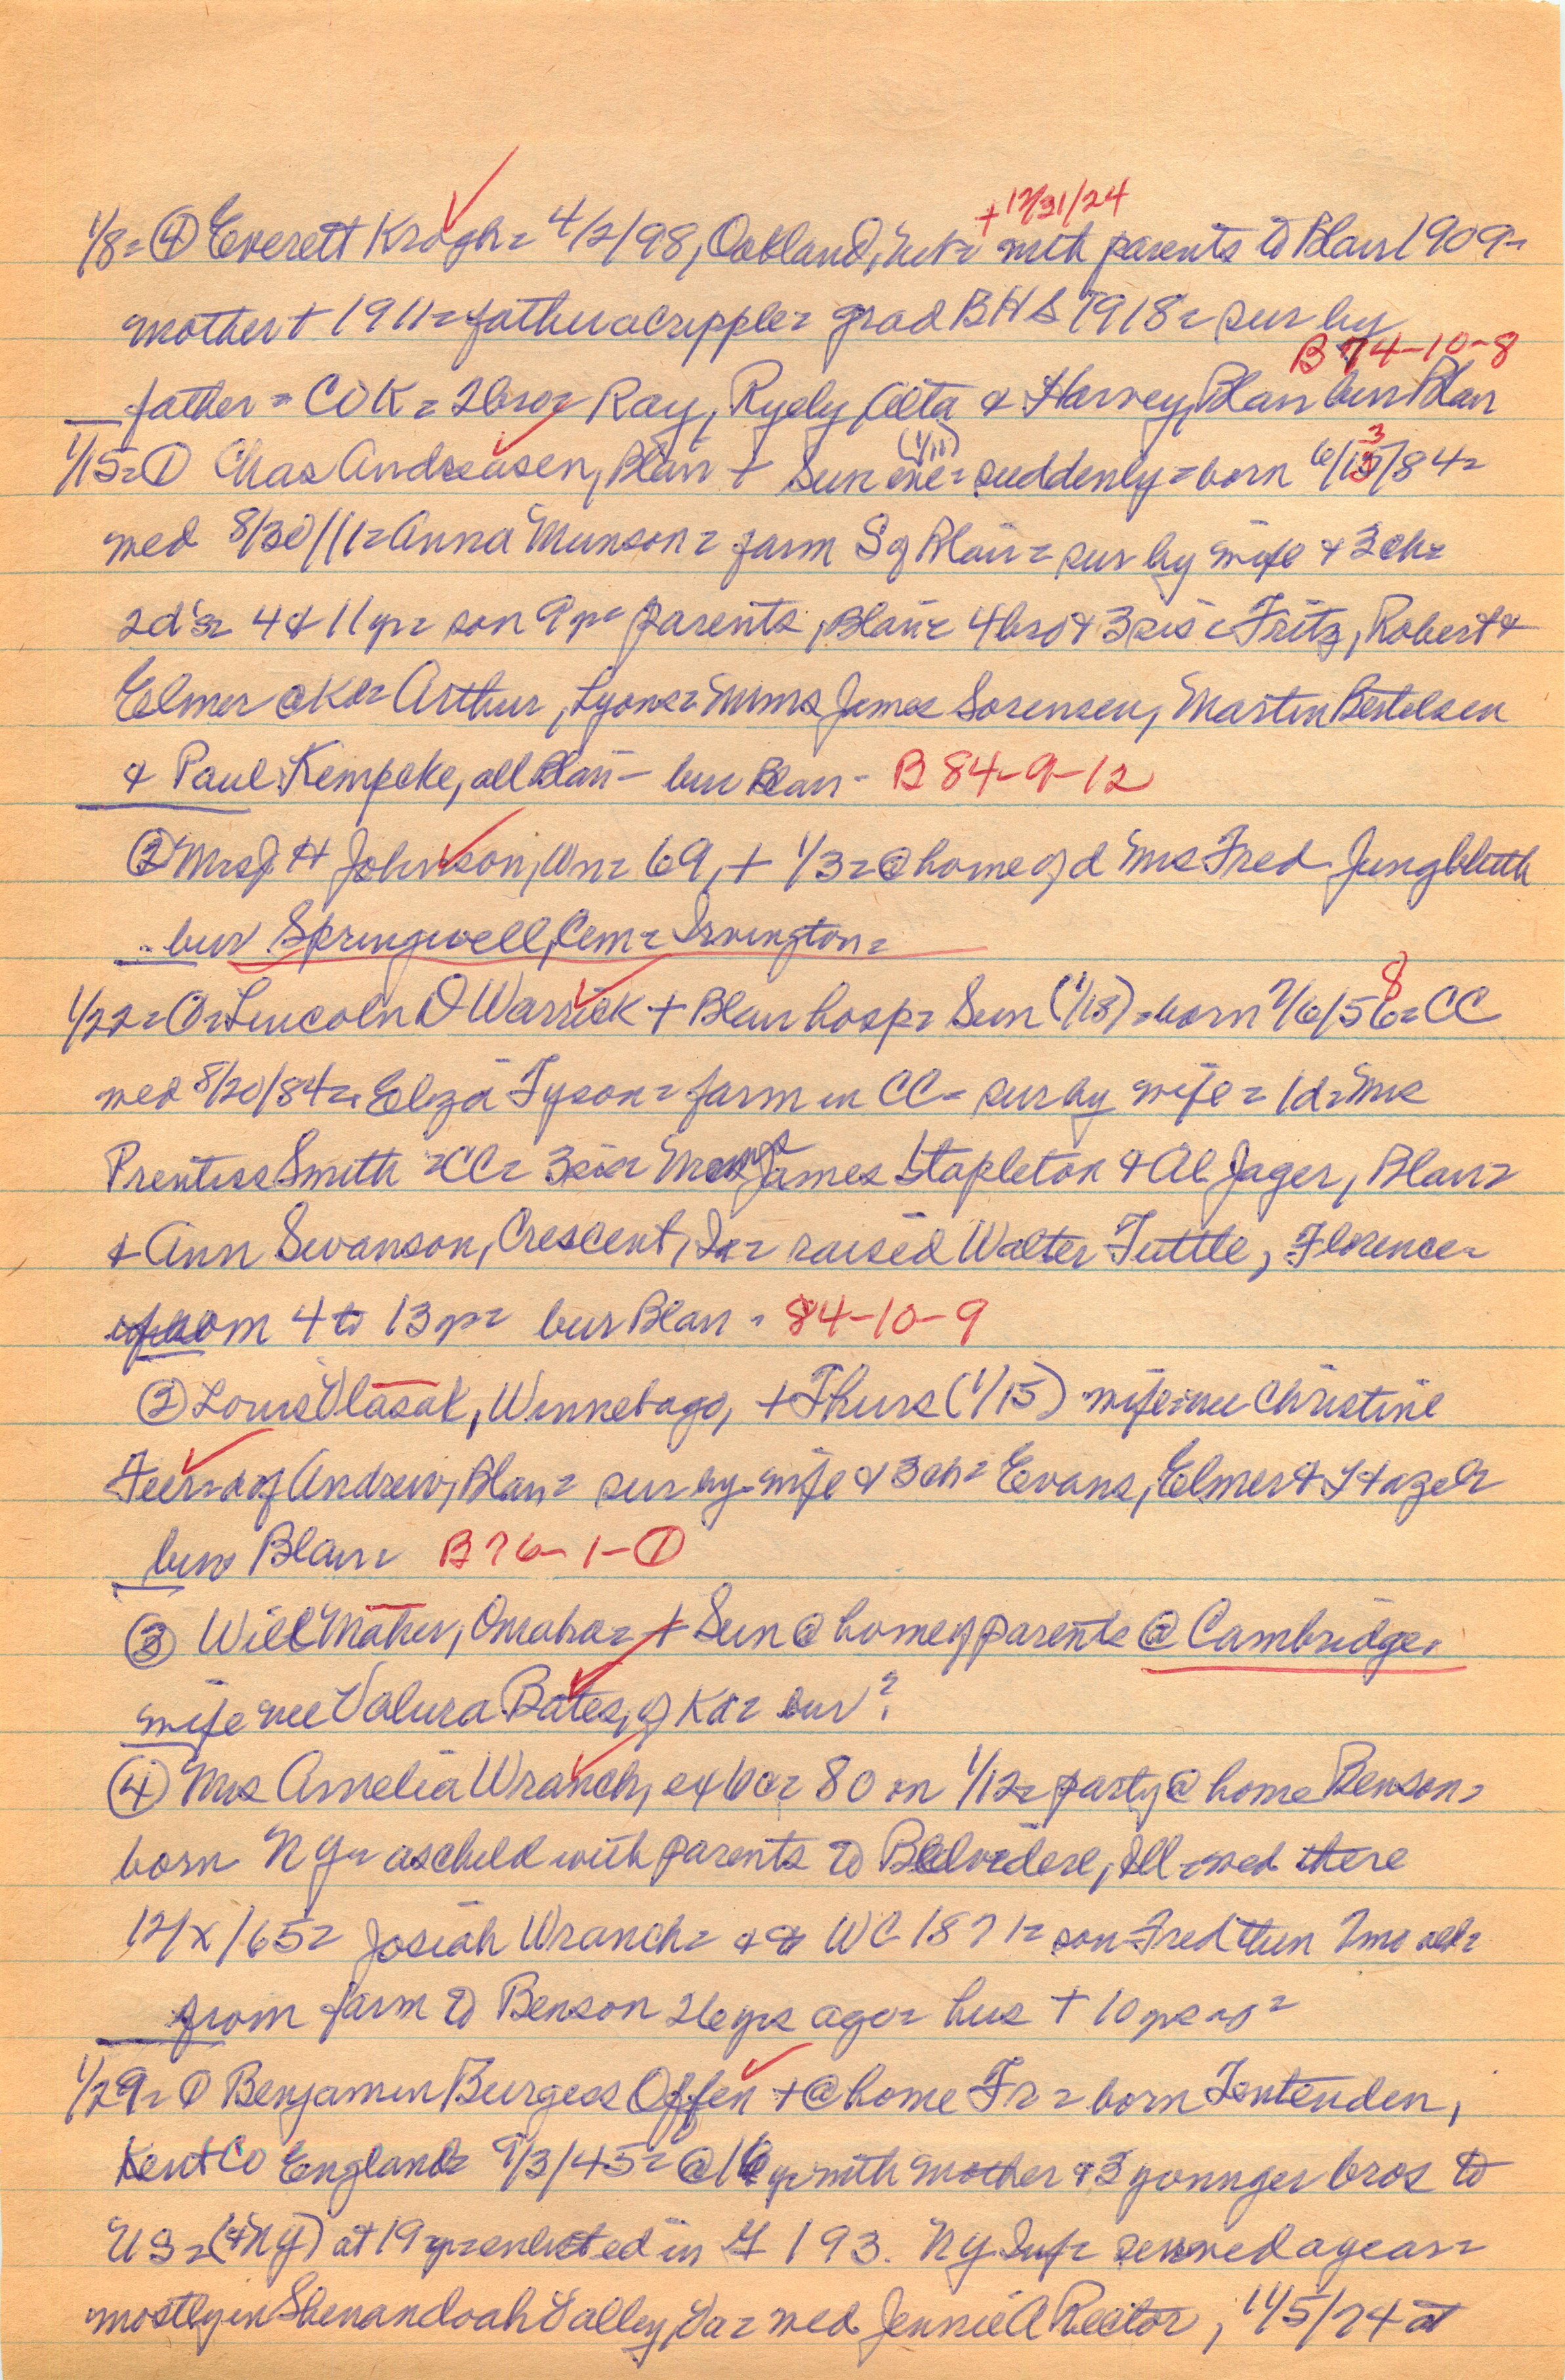 + 12/31/24
1/8= ④ Everett Krogh= 4/2/98, Oakland, Neb= with parents to Blair 1909=
mother + 1911= father a cripple= grad BHS 1918= sur by
B 74-10-8
father = COK= 2bro= Ray, Ryely, Alta & Harvey, Blair bur Blair
1/15= ① Chas Andreasen, Blair + Sun eve (1/11) = suddenly = born 6/13/84=
wed 8/30/11= Anna Munson= farm S of Blair= sur by wife & 3 ch=
2d's= 4 & 11 yr= son 9 yr= parents, Blair= 4bro & 3 sis= Fritz, Robert &
Elmer @ Ka= Arthur, Lyons= Mmes James Sorensen, Martin Bertelsen
& Paul Kempcke, all Blair - bur Blair - B 84-9-12
② Mrs J H Johnson, Wn= 69, + 1/3= @ home of d Mrs Fred Jungbluth
bur Springwell, Cem= Irvington=
1/22= ①= Lincoln D Warrick + Blair hosp= Sun (1/18) = born 7/6/58= CC
wed 8/20/84= Eliza Tyson= farm in CC= sur by wife= 1d= Mrs
Prentiss Smith =CC= 3sis= Mmes James Stapleton & Al Jager, Blair=
& Ann Swanson, Crescent, Ia= raised Walter Tuttle, Florence=
from 4 to 13 yr= bur Blair = 84-10-9
② Louis Vlasak, Winnebago, + Thurs (1/15) wife=nee Christine
Feer= d of Andrew, Blair= sur by wife & 3 ch= Evans, Elmer & Hazel=
bur Blair= B 76-1-①
③ Will Maher, Omaha= + Sun @ home of parents @ Cambridge=
wife nee Valura Bates, of Ka= bur?
④ Mrs Amelia Wranch, ex 6 o= 80 on 1/12= party @ home Benson=
born NY= as child with parents to Belvidere, Ill= wed there
12/x/65= Josiah Wranch= & to WC 1871= son Fred then 7 mo old=
from farm to Benson 26 yrs ago= hus + 10 yrs ago=
1/29= ① Benjamin Burgess Offen + @ home Fr= born Tentenden,
Kent Co England= 9/3/45= @ 16 yr with mother & 3 younger bros to
US= (NY) at 19 yr= enlisted in G 193. NY Inf= served a year=
mostly in Shenandoah Valley, Va= wed Jennie A Rector, 11/5/74 at